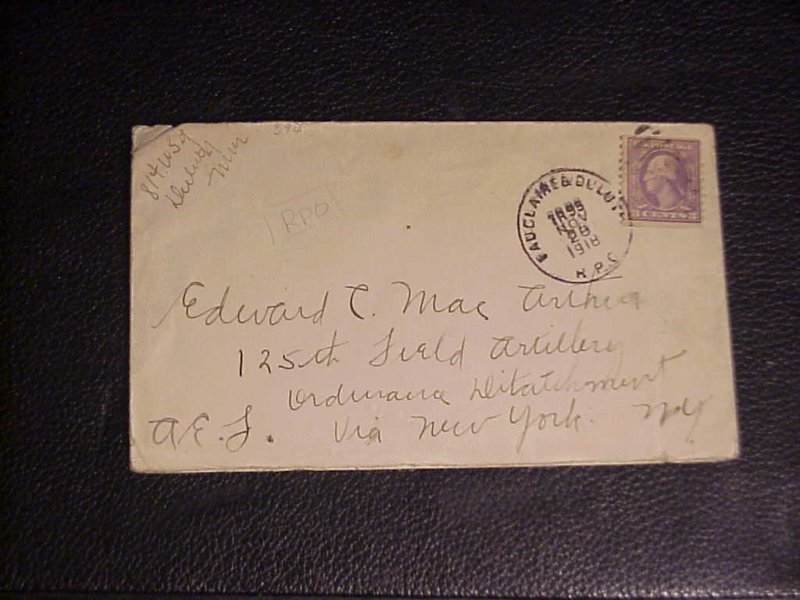 814 W 5 St
Duluth
Minn
394
1 RPO
EAU CLAIRE & DULUTH
TR 95
NOV
28
1918
R.P.O.
U.S. POSTAGE
CENTS
Edward C. Mac Arthur
125th Field Artillery
Ordinance Ditatchment
A.E.F. Via New York. N.Y.